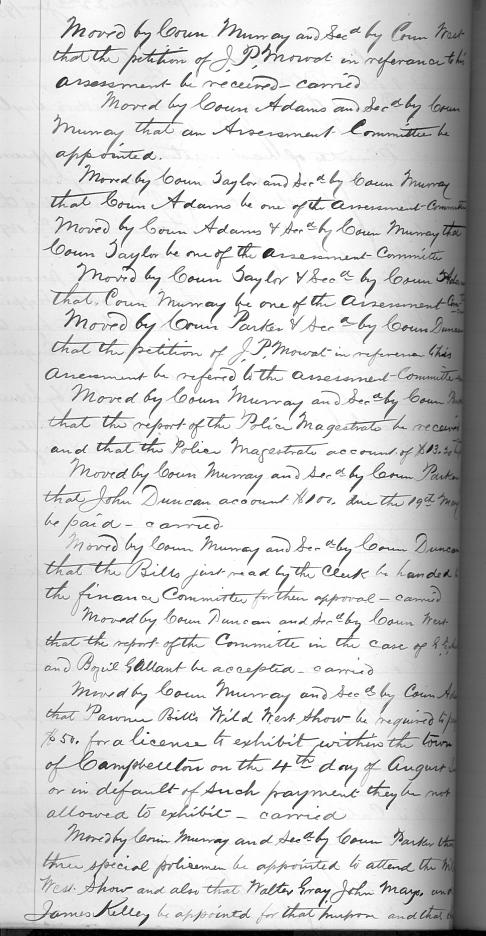 Moved by Coun Murray and Secd by Coun West
that the petition of J. P. Mowat in referance to his
assessment be received - carried
Moved by Coun Adams and Secd by Coun
Murray that an Assessment Committee be
appointed.
Moved by Coun Taylor and Secd by Coun Murray
that Coun Adams be one of the Assessment Committee
Moved by Coun Adams & Secd by Coun Murray that
Coun Taylor be one of the assessment Committe
Moved by Coun Taylor & Secd by Coun
that Coun Murray be one of the assessment
Moved by Coun Parker & Secd by Coun Duncan
that the petition of J. P. Mowat in referance to his
Assessment be refered to the assessment Committee
Moved by Coun Murray and Secd by Coun
that the report of the Police Magestrate be received
and that the Police Magestrate account of $13.
Moved by Coun Murray and Secd by Coun Parker
that John Duncan account $100. due the 19th May
be paid - carried
Moved by Coun Murray and Secd by Coun Duncan
that the Bills just read by the Clerk be handed
the finance Committee for their approval - carried
Moved by Coun Duncan and Secd by Coun West
that the report of the Committe in the case of
and Bozil Gallant be accepted - carried
Moved by Coun Murray and Secd by Coun
that Pawnee Bills Wild West Show be required to
$50. for a license to exhibit within the town
of Campbellton on the 4th day of August
or in default of such payment they be not
allowed to exhibit - carried
Moved by Coun Murray and Secd by Coun Parker that
three special policemen be appointed to attend the
West Show and also that Walter Gray, John Mays and
James Kelley be appointed for that purpose and that